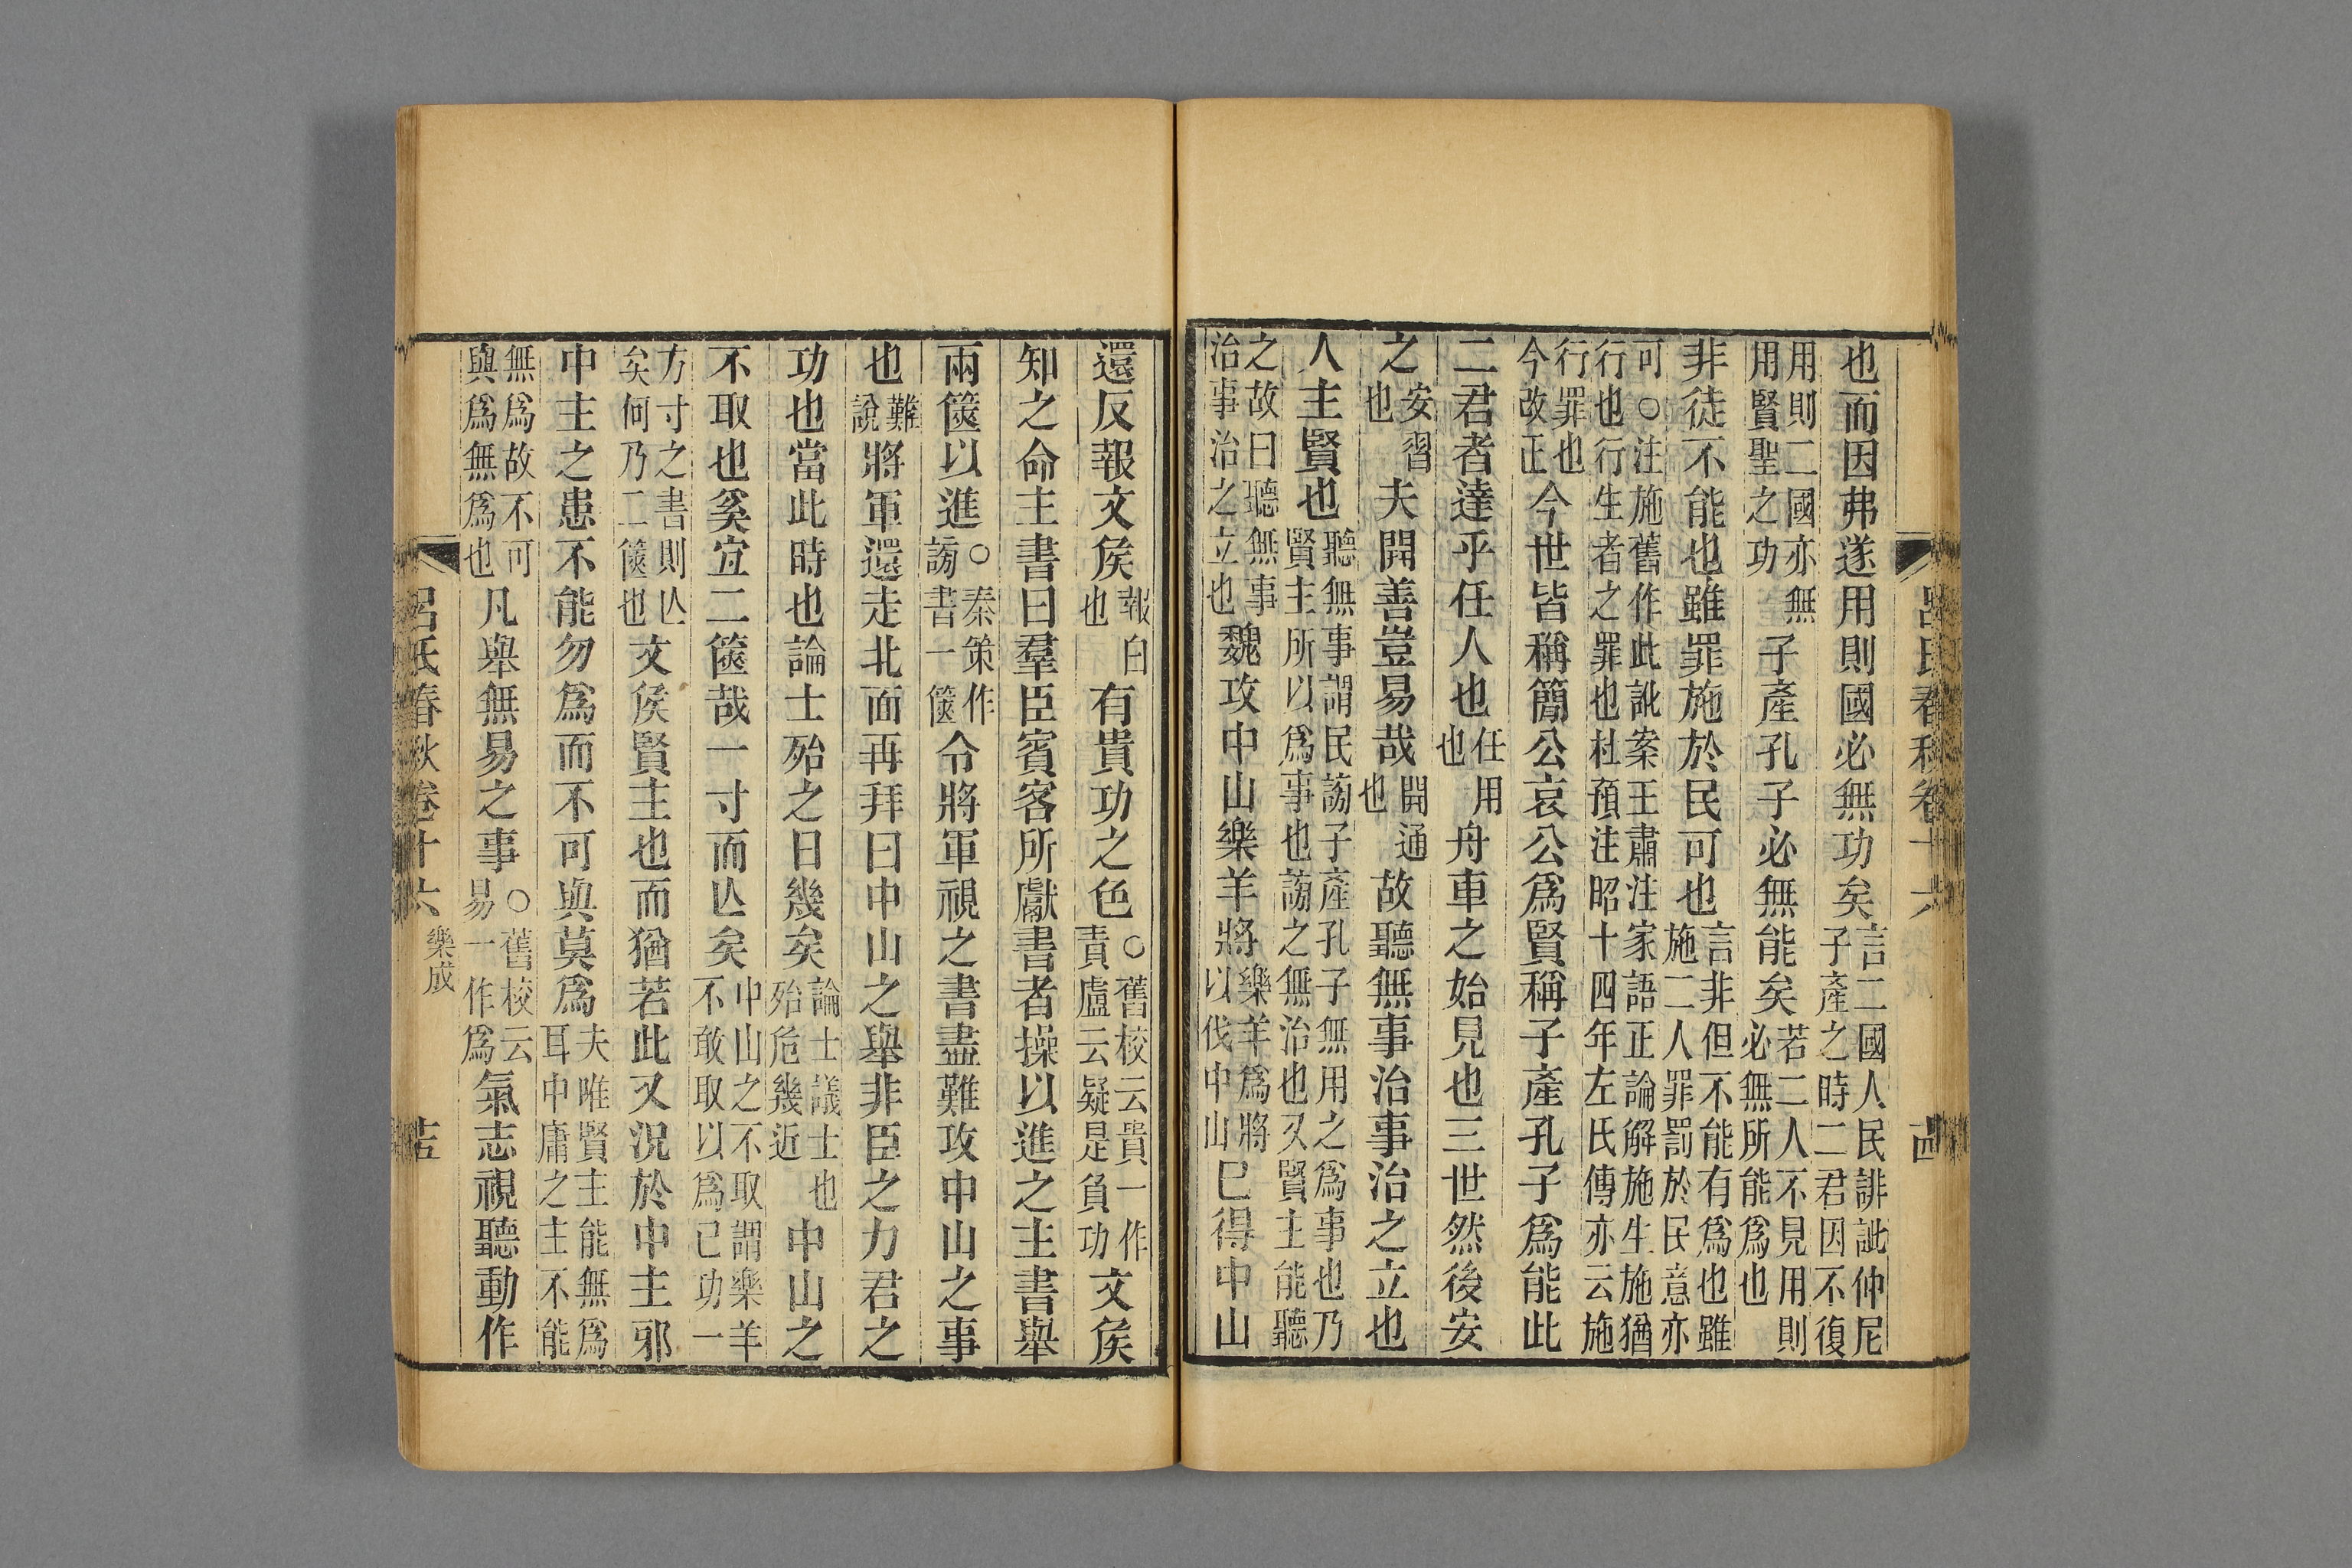 也而因弗遂用則國必無功矣言二國人民誹訿仲尼子產之時二君因不復
用則二國亦無用賢聖之功子產孔子必無能矣若二人不見用則必無所能爲也
非徒不能也雖罪施於民可也言非但不能有爲也雖施二人罪罰於民意亦
可○注施舊作此訛案王肅注家語正論解施生施猶行也行生者之罪也杜預注昭十四年左氏傳亦云施
行罪也今改正今世皆稱簡公哀公爲賢稱子產孔子爲能此
二君者達乎任人也任用也舟車之始見也三世然後安
之安習也夫開善豈易哉開通也故聽無事治事治之立也
人主賢也聽無事謂民謗子產孔子無用之爲事也乃賢主所以爲事也謗之無治也又賢主能聽
之故曰聽無事治事治之立也魏攻中山樂羊將樂羊爲將以伐中山已得中山
還反報文侯報白也有貴功之色○舊校云貴一作責盧云疑是負功文侯
知之命主書曰羣臣賓客所獻書者操以進之主書舉
兩篋以進○秦策作謗書一篋令將軍視之書盡難攻中山之事
也難說將軍還走北面再拜曰中山之舉非臣之力君之
功也當此時也論士殆之日幾矣論士議士也殆危幾近中山之
不取也奚宜二篋哉一寸而亾矣中山之不取謂樂羊不敢取以爲己功一
方寸之書則亾矣何乃二篋也文侯賢主也而猶若此又況於中主邪
中主之患不能勿爲而不可與莫爲夫唯賢主能無爲耳中庸之主不能
無爲故不可與爲無爲也凡舉無易之事○舊校云易一作爲氣志視聽動作
呂氏春秋卷十六 樂成